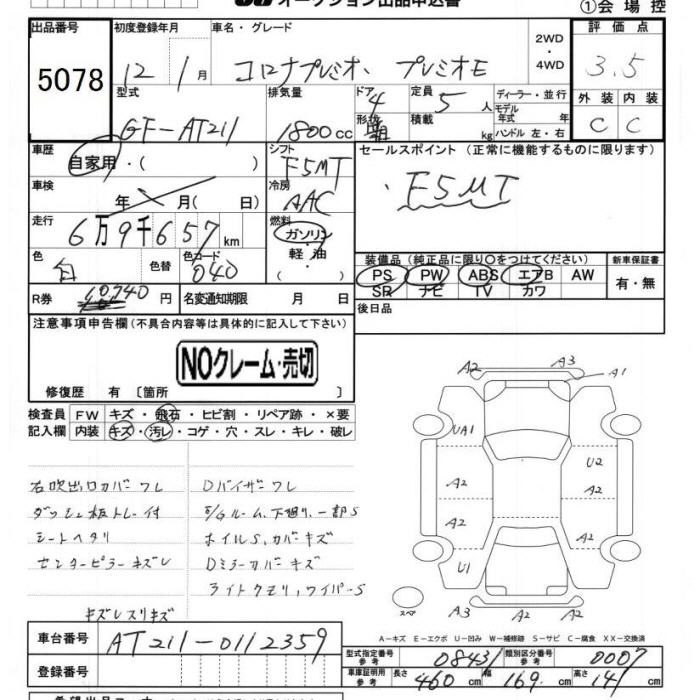 オークション出品申込書
①会場控
出品番号
5078
初度登録年月
12 1月
車名・グレード
コロナプレミオ、プレミオE
2WD
・
4WD
評価点
3.5
外装 内装
C C
型式
GF-AT211
排気量
1800cc
ドア 4
形状 箱
定員 5人
積載 kg
ディーラー・並行
モデル年式 年
ハンドル 左・右
車歴
自家用・( )
シフト
F5MT
セールスポイント (正常に機能するものに限ります)
F5MT
車検
年 月( 日)
冷房
AAC
走行
6万9千657km
燃料
ガソリン
軽油
色
白
色替
色コード
040
装備品 (純正品に限り○をつけてください)
PS PW ABS エアB AW
SR ナビ TV カワ
新車保証書
有・無
R券 10740円
名変通知期限 月 日
後日品
注意事項申告欄(不具合内容等は具体的に記入して下さい)
NOクレーム・売切
修復歴 有 〔箇所 〕
検査員記入欄
FW キズ・飛石・ヒビ割・リペア跡・×要
内装 キズ・汚レ・コゲ・穴・スレ・キレ・破レ
右吹出口カバーワレ
Dバイザーワレ
ダッシュ板トレー付
E/Gルーム、下廻り、一部S
シートヘタリ
ホイルS、カバキズ
センターピラーキズレ
Dミラーカバキズ
ライトクモリ、ワイパーS
キズレスリキズ
A2 A3 A1
UA1 U2
A2 A2
A2 A2
U1
A3 A2 A2
スペア
A−キズ E−エクボ U−凹み W−補修跡 S−サビ C−腐食 XX−交換済
車台番号
AT211-0112359
登録番号
型式指定番号 参考 08431
類別区分番号 参考 0007
車庫証明用 参考 長さ 460cm 幅 169cm 高さ 141cm